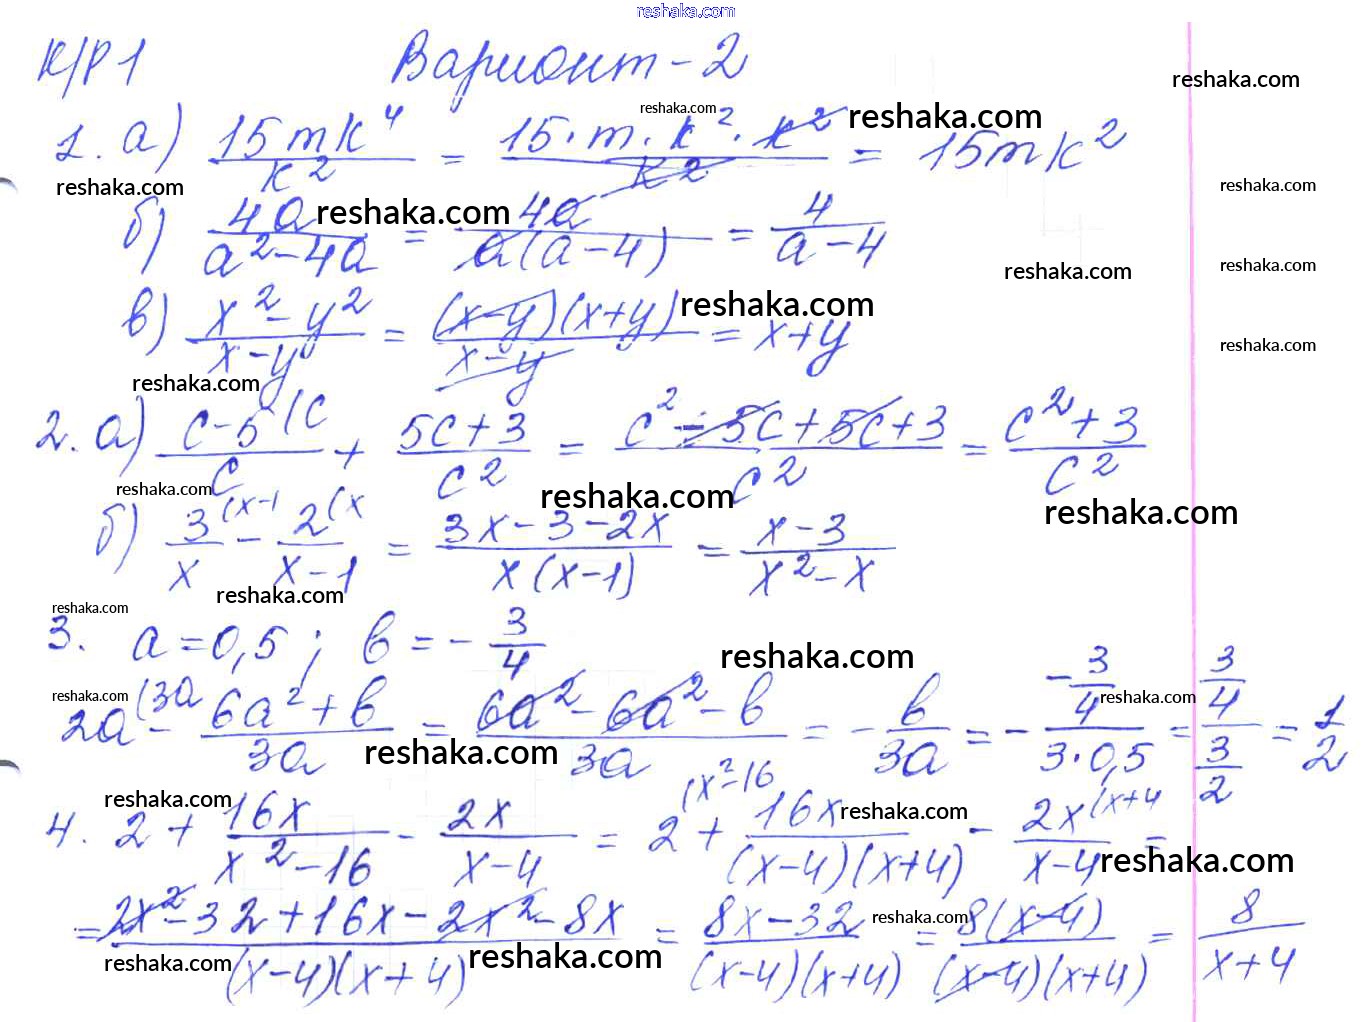 reshaka.com
К/Р 1 Вариант-2
reshaka.com
1. а) 15mk⁴/k² = 15·m·k²·k²/k² = 15mk²
reshaka.com reshaka.com reshaka.com reshaka.com
б) 4a/(a²-4a) = 4a/(a(a-4)) = 4/(a-4)
reshaka.com reshaka.com reshaka.com
в) (x²-y²)/(x-y) = (x-y)(x+y)/(x-y) = x+y
reshaka.com reshaka.com reshaka.com
2. а) (c-5)/c (c + (5c+3)/c² = (c²-5c+5c+3)/c² = (c²+3)/c²
reshaka.com reshaka.com reshaka.com
б) 3/x (x-1 - 2/(x-1) (x = (3x-3-2x)/(x(x-1)) = (x-3)/(x²-x)
reshaka.com
reshaka.com
3. a=0,5; b=-3/4
reshaka.com
2a (3a - (6a²+b)/3a = (6a²-6a²-b)/3a = -b/3a = -(-3/4)/(3·0,5) = (3/4)/(3/2) = 1/2
reshaka.com reshaka.com reshaka.com
4. 2 + 16x/(x²-16) - 2x/(x-4) = 2 (x²-16 + 16x/((x-4)(x+4)) - 2x/(x-4) (x+4 =
reshaka.com reshaka.com reshaka.com
= (2x²-32+16x-2x²-8x)/((x-4)(x+4)) = (8x-32)/((x-4)(x+4)) = 8(x-4)/((x-4)(x+4)) = 8/(x+4)
reshaka.com reshaka.com reshaka.com